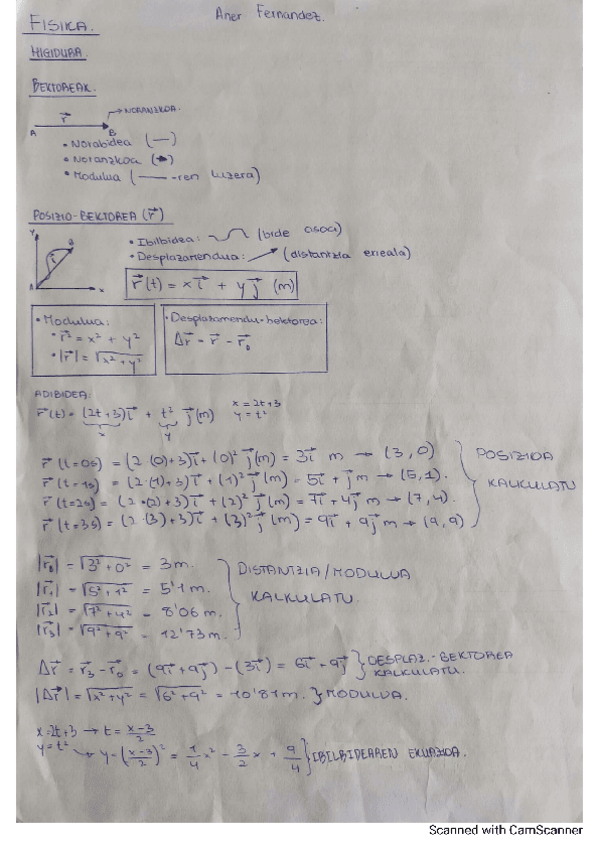 Aner Fernandez.
FISIKA.
HIGIDURA.
BEKTOREAK.
r⃗
→NORANZKOA.
A B
• Norabidea (—)
• Noranzkoa (➔)
• Modulua (——-ren luzera)
POSIZIO-BEKTOREA (r⃗)
• Ibilbidea: (bide osoa)
• Desplazamendua: (distantzia erreala)
y
x
r⃗(t) = x i⃗ + y j⃗ (m)
• Modulua:
• r⃗² = x² + y²
• |r⃗| = √x² + y²
• Desplazamendu-bektorea:
Δr⃗ - r⃗ - r⃗₀
ADIBIDEA:
r⃗(t) = (2t+3) i⃗ + t² j⃗ (m)
x y
x = 2t+3
y = t²
r⃗ (t=0s) = (2·(0)+3) i⃗ + (0)² j⃗ (m) = 3i⃗ m → (3,0)
r⃗ (t=1s) = (2·(1)+3) i⃗ + (1)² j⃗ (m) = 5i⃗ + j⃗ m → (5,1).
r⃗ (t=2s) = (2·(2)+3) i⃗ + (2)² j⃗ (m) = 7i⃗ + 4j⃗ m → (7,4).
r⃗ (t=3s) = (2·(3)+3) i⃗ + (3)² j⃗ (m) = 9i⃗ + 9j⃗ m → (9,9)
POSIZIOA
KALKULATU
|r⃗₀| = √3² + 0² = 3m.
|r⃗₁| = √5² + 1² = 5'1 m.
|r⃗₂| = √7² + 4² = 8'06 m.
|r⃗₃| = √9² + 9² = 12'73 m.
DISTANTZIA/MODULUA
KALKULATU.
Δr⃗ = r⃗₃ - r⃗₀ = (9i⃗ + 9j⃗) - (3i⃗) = 6i⃗ + 9j⃗ } DESPLAZ.-BEKTOREA
KALKULATU.
|Δr⃗| = √x² + y² = √6² + 9² = 10'81m. } MODULUA.
x=2t+3 → t = x-3/2
y=t² → y = (x-3/2)² = 1/4 x² - 3/2 x + 9/4 } IBILBIDEAREN EKUAZIOA.
Scanned with CamScanner